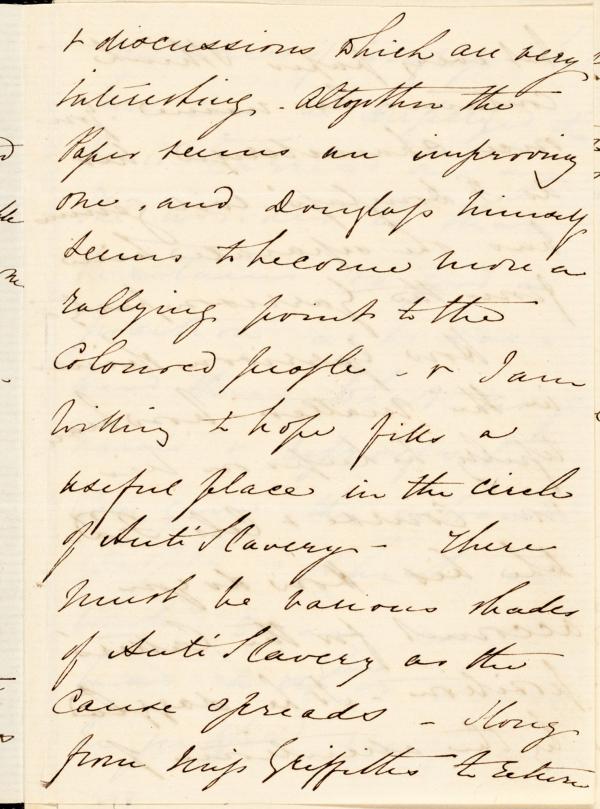 & discussions which are very
interesting - Altogether the
Paper seems an improving
one, and Douglass himself
seems to become more a
rallying point to the
Coloured people - & I am
willing to hope fills a
useful place in the circle
of Anti Slavery - There
must be various shades
of Anti Slavery as the
cause spreads -
from Miss Griffiths to return